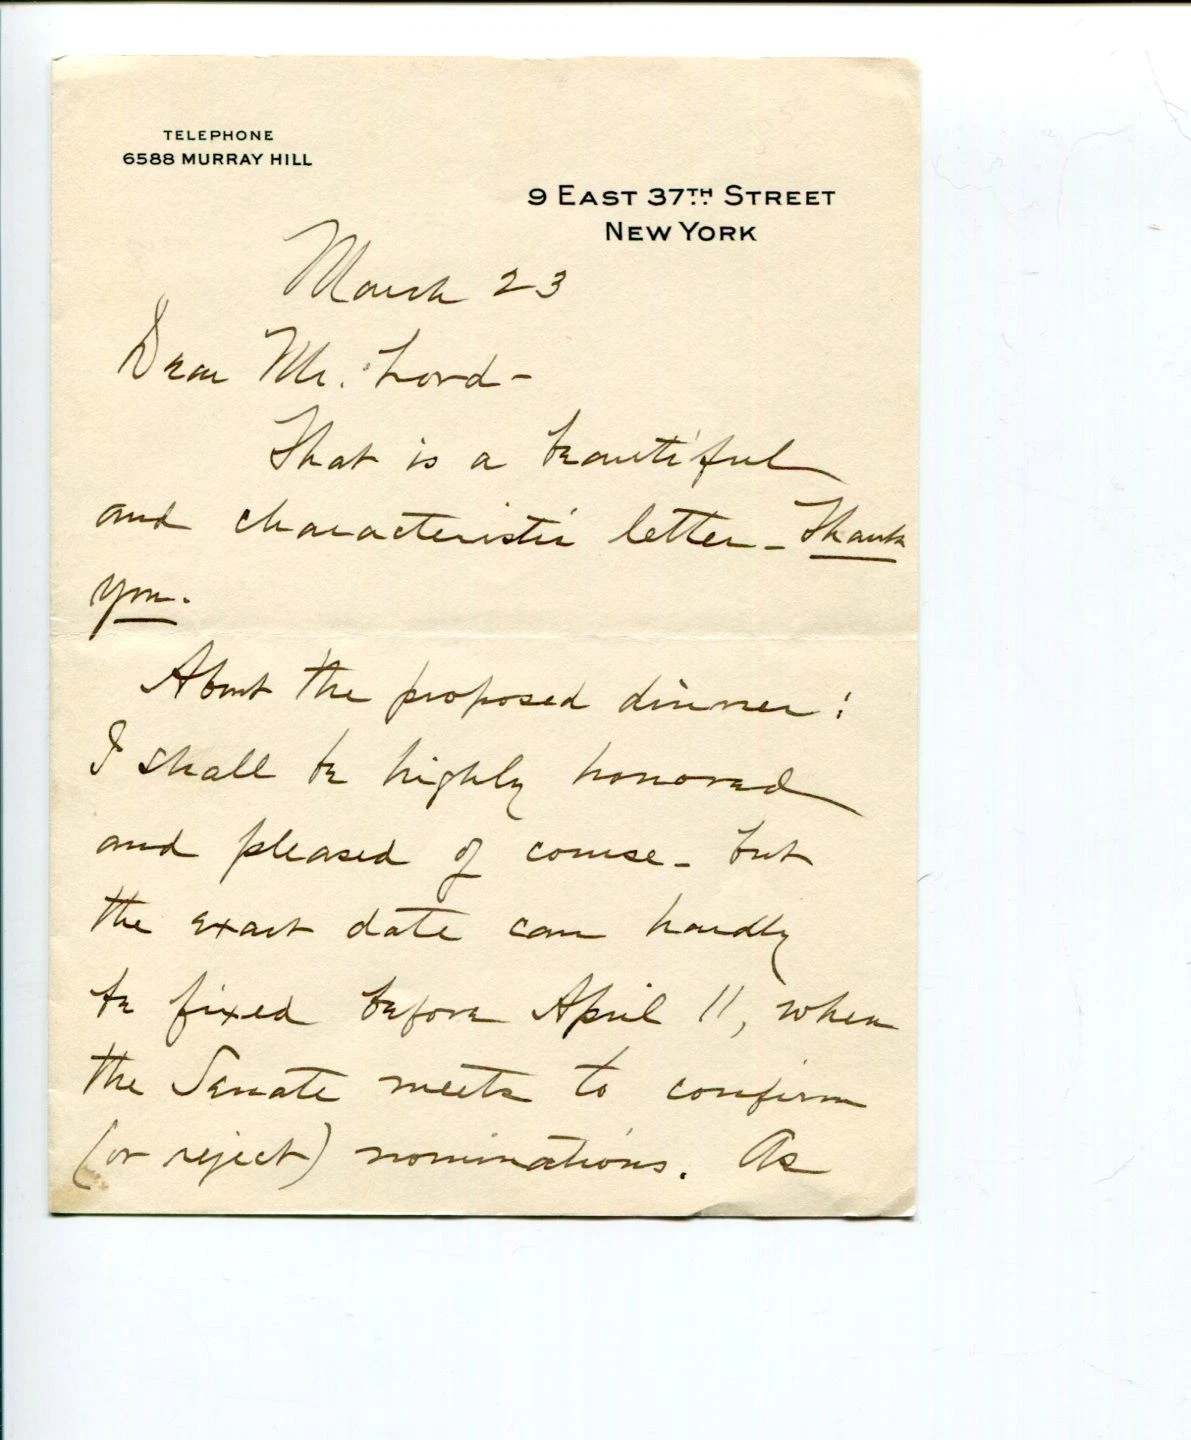 TELEPHONE
6588 MURRAY HILL
9 EAST 37TH STREET
NEW YORK
March 23
Dear Mr. Lord -
That is a beautiful
and characteristic letter - Thank
you.
About the proposed dinner:
I shall be highly honored
and pleased of course - but
the exact date can hardly
be fixed before April 11, when
the Senate meets to confirm
(or reject) nominations. As